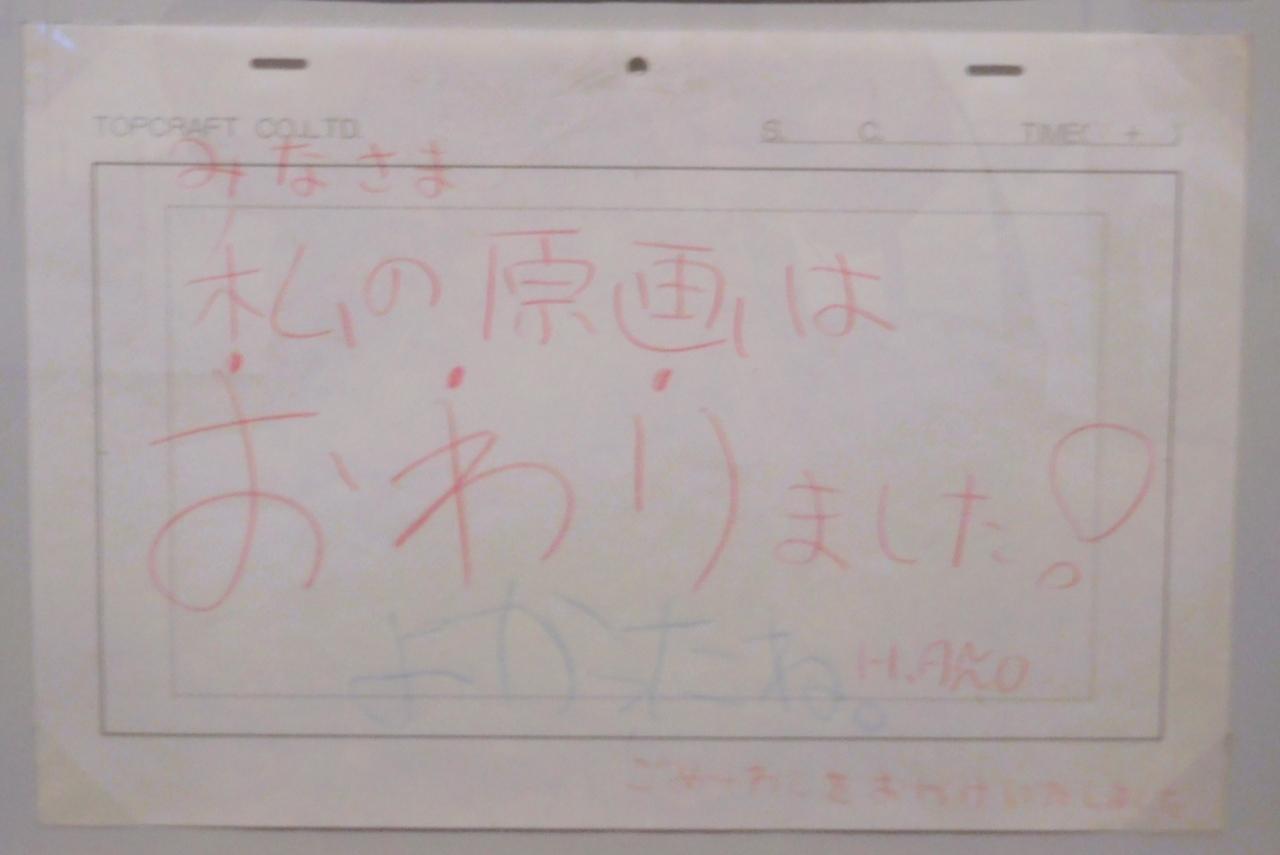 TOPCRAFT CO.,LTD.
S. C. TIME( + )
みなさま
私の原画は
おわりました!
よかったね。
H.Anno
ごめーわくをおかけいたしました